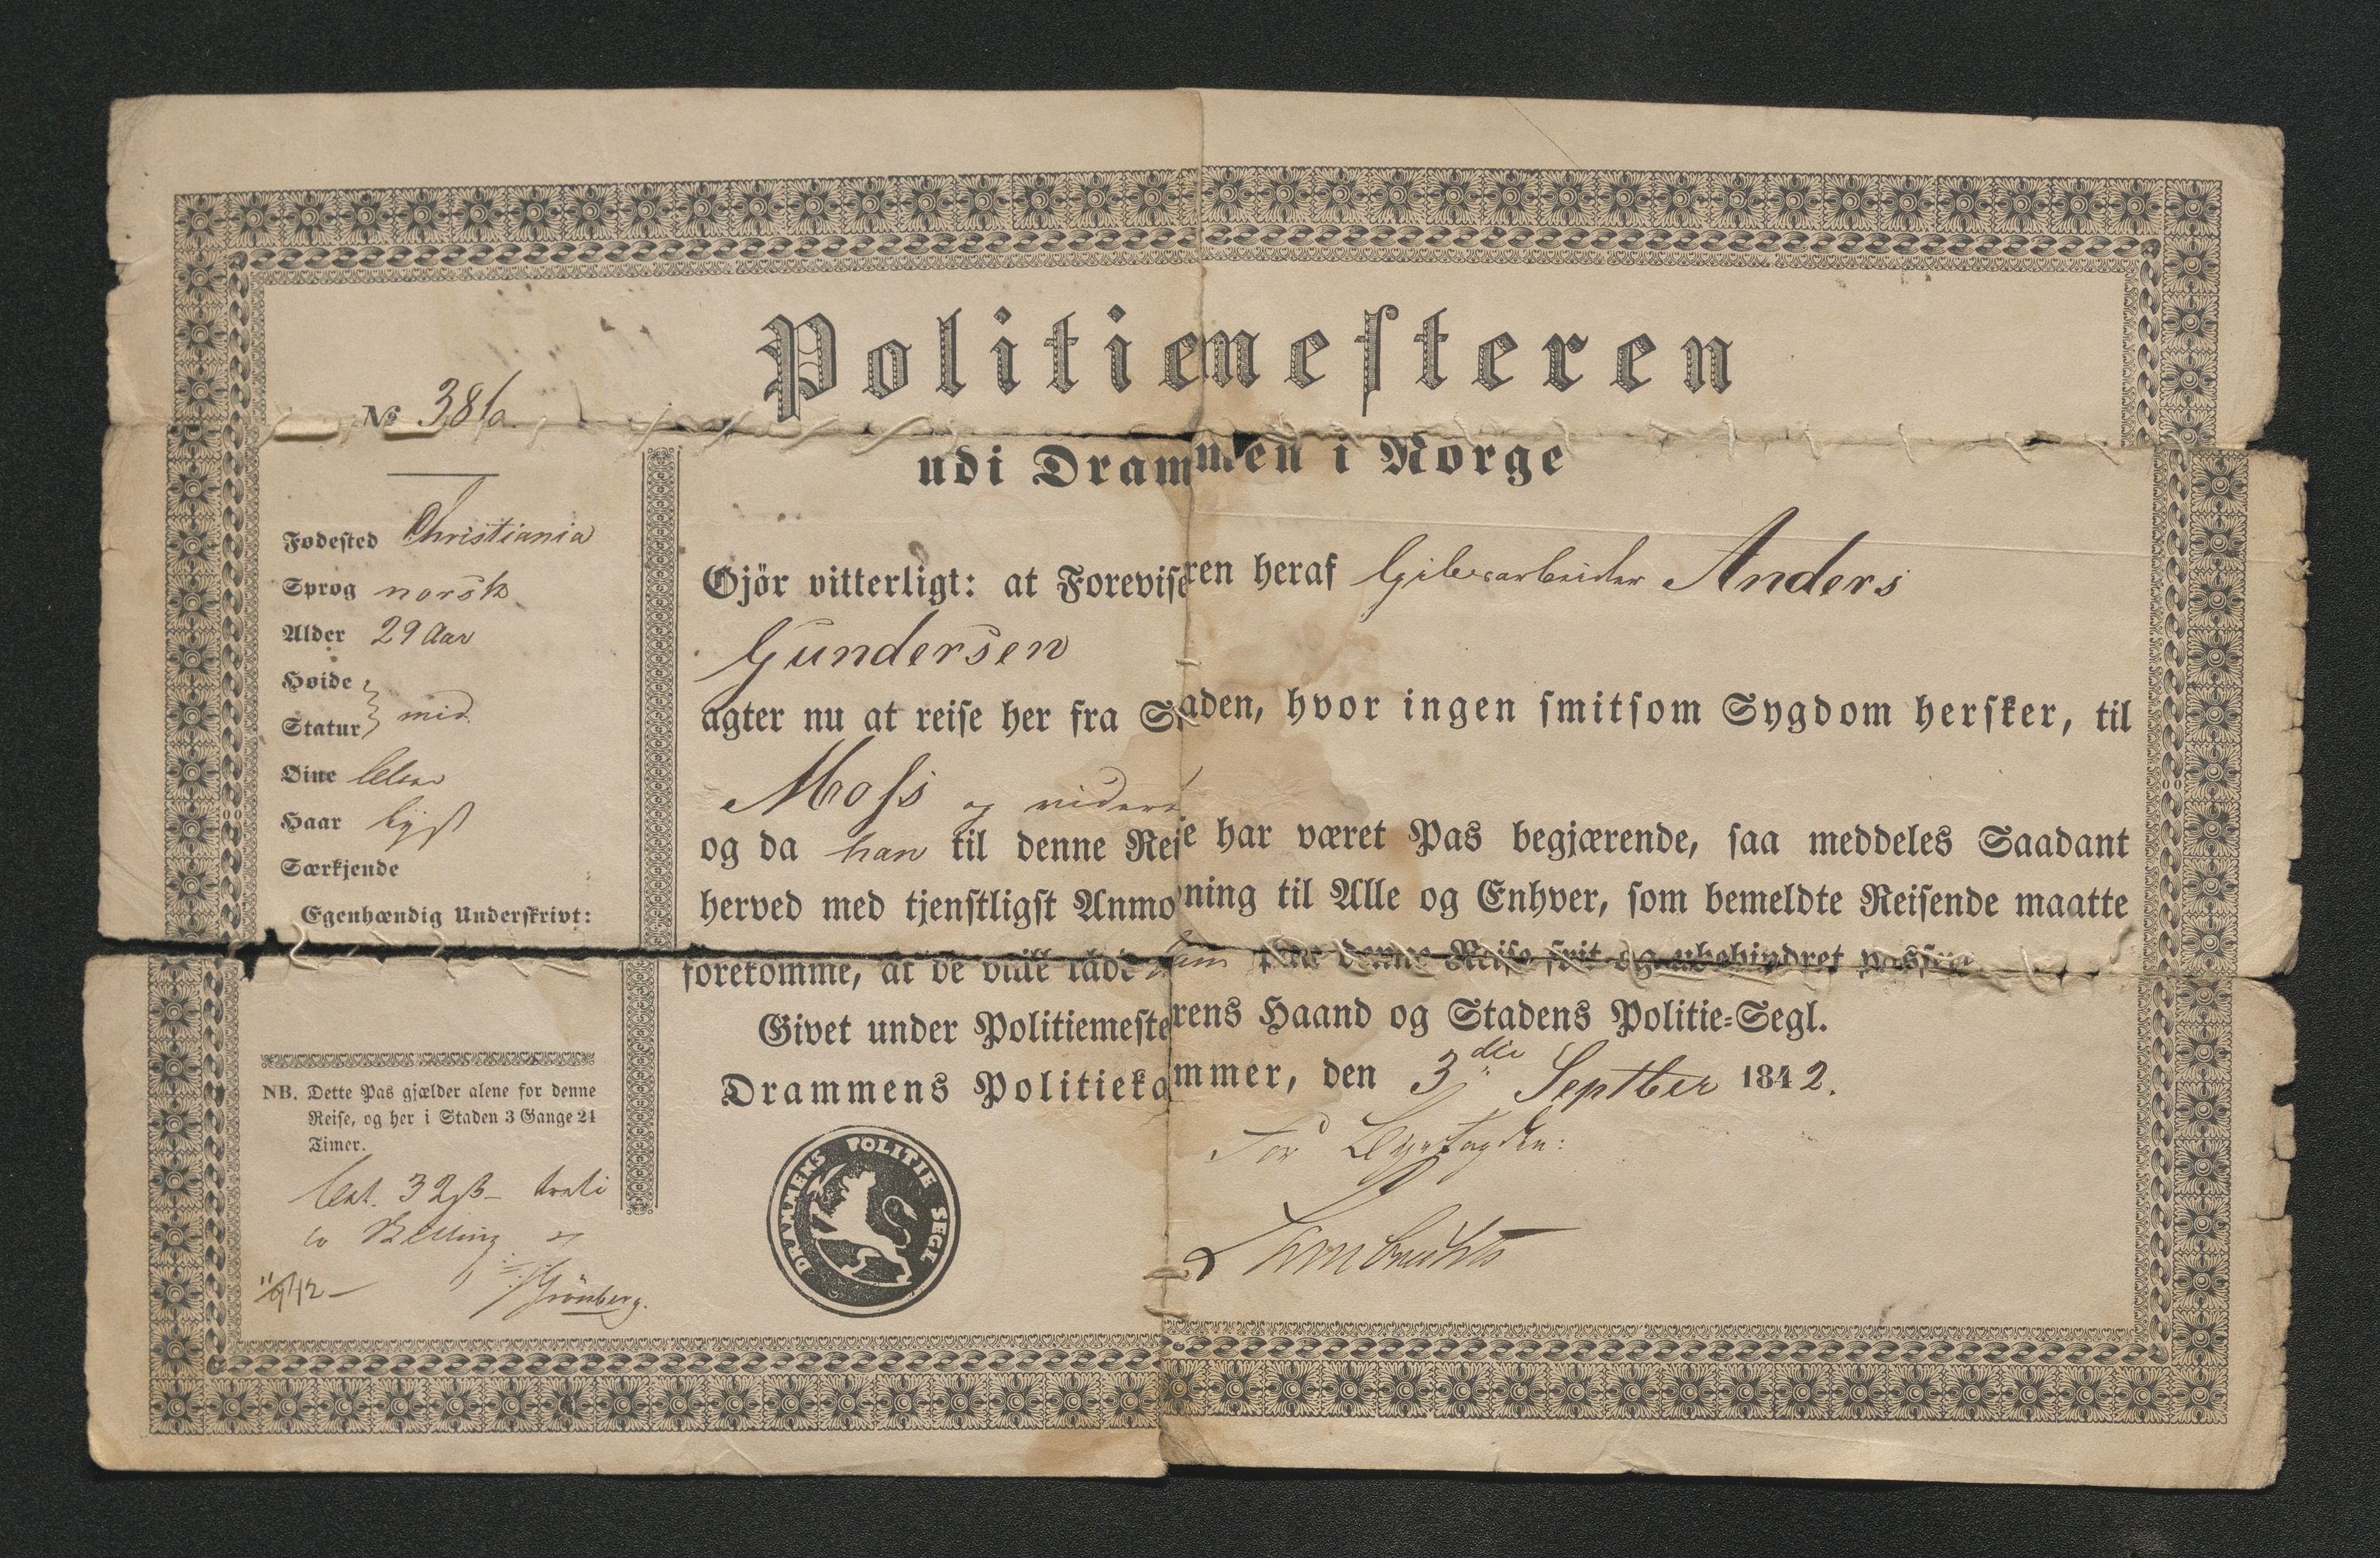 Politiemesteren
udi Drammen i Norge
No 386a.
Fødested Christiania
Sprog norsk
Alder 29 Aar
Høide
Statur mid.
Øine blaa
Haar lyst
Særkjende
Egenhændig Underskrivt:
NB. Dette Pas gjælder alene for denne
Reise, og her i Staden 3 Gange 24
Timer.
32
Grönberg.
Gjör vitterligt: at Foreviseren heraf Anders
Gundersen
agter nu at reise her fra Staden, hvor ingen smitsom Sygdom hersker, til
Moss og videre
og da han til denne Reise har været Pas begjærende, saa meddeles Saadant
herved med tjenstligst Anmodning til Alle og Enhver, som bemeldte Reisende maatte
forekomme, at de ville lade ham paa denne Reise frit og ubehindret passere
Givet under Politiemesterens Haand og Stadens Politie-Segl.
Drammens Politiekammer, den 3die Septber 1842.
DRAMMENS POLITIE SEGL